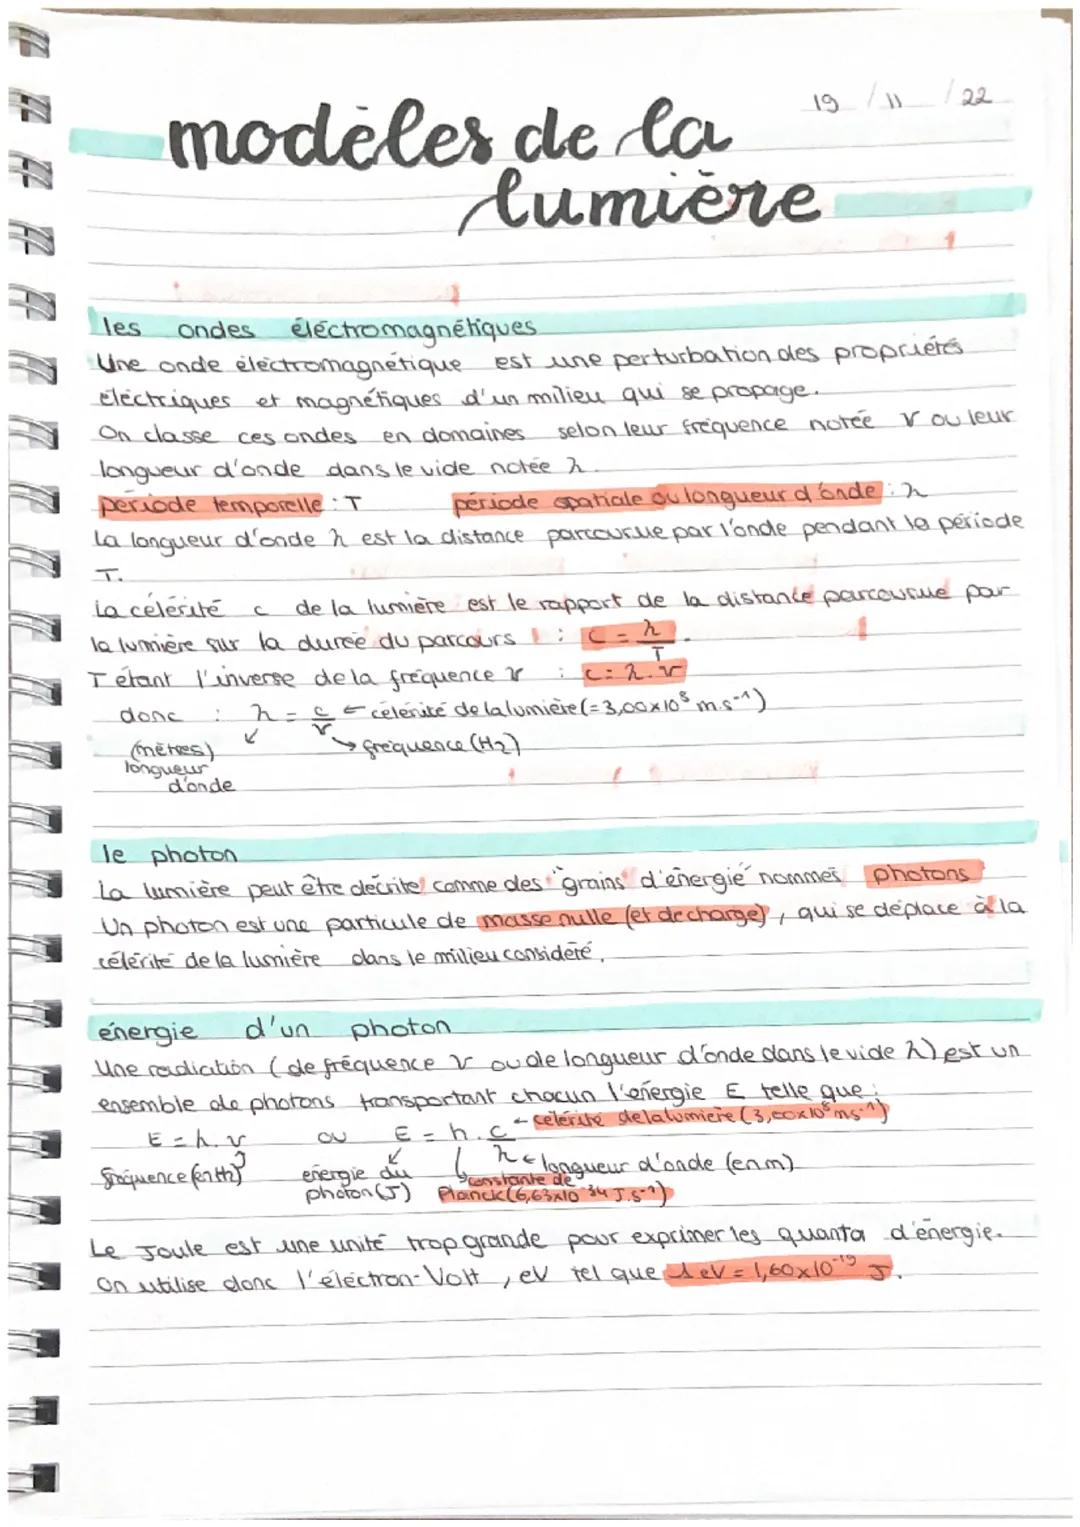 19 / 11 / 22
modèles de la
lumière
les ondes éléctromagnétiques
Une onde éléctromagnétique est une perturbation des propriétés
éléctriques et magnétiques d'un milieu qui se propage.
On classe ces ondes en domaines selon leur fréquence notée ν ou leur
longueur d'onde dans le vide notée λ.
période temporelle : T période spatiale ou longueur d'onde : λ
La longueur d'onde λ est la distance parcourue par l'onde pendant la période
T.
La célérité c de la lumière est le rapport de la distance parcourue par
la lumière sur la durée du parcours : c = λ/T.
T étant l'inverse de la fréquence ν : c = λ.ν
donc : λ = c/ν ← célérité de la lumière (= 3,00x10⁸ m.s⁻¹)
(mètres) ↙ → fréquence (Hz)
longueur
d'onde
le photon
La lumière peut être décrite comme des "grains" d'énergie nommés photons
Un photon est une particule de masse nulle (et de charge), qui se déplace à la
célérité de la lumière dans le milieu considéré.
énergie d'un photon
Une radiation (de fréquence ν ou de longueur d'onde dans le vide λ) est un
ensemble de photons transportant chacun l'énergie E telle que :
E = h.ν ou E = h.c/λ ← célérité de la lumière (3,00x10⁸ m.s⁻¹)
fréquence (en Hz) énergie du ← longueur d'onde (en m)
photon (J) constante de
Planck (6,63x10⁻³⁴ J.s⁻¹)
Le Joule est une unité trop grande pour exprimer les quanta d'énergie.
On utilise donc l'éléctron-Volt, eV tel que 1 eV = 1,60x10⁻¹⁹ J.